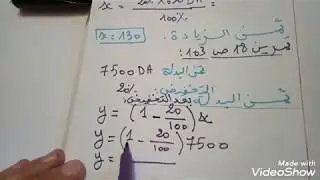 100%
ثمن الزيادة.
x = 130
تمرين 18 ص 103
7500 DA ثمن البدلة
التخفيض: 20%
ثمن البدلة بعد التخفيض:
y = (1 - 20/100) x
y = (1 - 20/100) 7500
y =
Made with
VideoShow